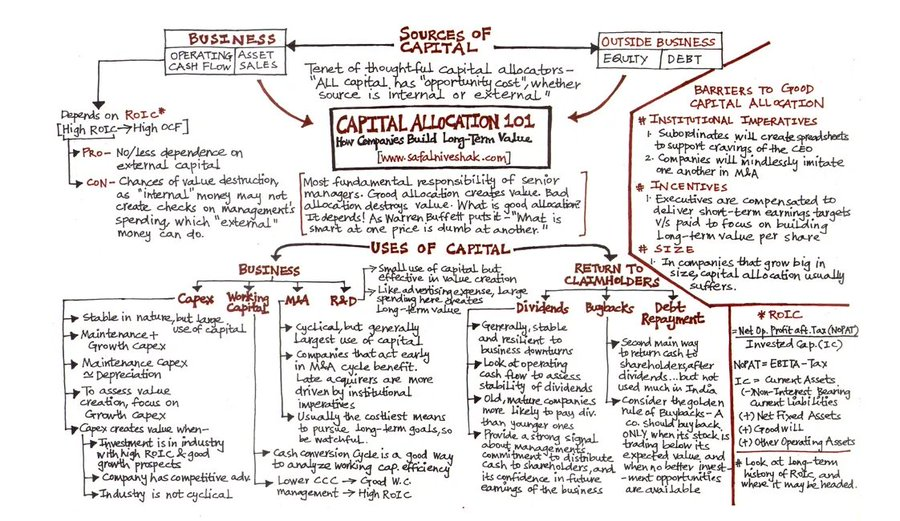 SOURCES OF
CAPITAL
BUSINESS
OPERATING
CASH FLOW
ASSET
SALES
OUTSIDE BUSINESS
EQUITY
DEBT
Tenet of thoughtful capital allocators-
"ALL capital has "opportunity cost", whether
source is internal or external"
CAPITAL ALLOCATION 101
How Companies Build Long-Term Value
[www.safalniveshak.com]
Most fundamental responsibility of senior
managers. Good allocation creates value. Bad
allocation destroys value. What is good allocation?
It depends! As Warren Buffett puts it - "What is
smart at one price is dumb at another."
Depends on ROIC*
[High ROIC → High OCF]
PRO- No/less dependence on
external capital
CON- Chances of value destruction,
as "internal" money may not
create checks on management's
spending, which "external"
money can do.
BARRIERS TO GOOD
CAPITAL ALLOCATION
# INSTITUTIONAL IMPERATIVES
1. Subordinates will create spreadsheets
to support cravings of the CEO
2. Companies will mindlessly imitate
one another in M&A
# INCENTIVES
1. Executives are compensated to
deliver short-term earnings targets
v/s paid to focus on building
Long-term value per share
# SIZE
1. In companies that grow big in
size, capital allocation usually
suffers.
USES OF CAPITAL
BUSINESS
Capex
Working
Capital
M&A
R&D
Small use of capital but
effective in value creation
Like advertising expense, large
spending here creates
Long-term value
Stable in nature, but large
use of capital
Maintenance +
Growth Capex
Maintenance Capex
≃ Depreciation
To assess value
creation, focus on
Growth capex
Capex creates value when-
Investment is in industry
with high ROIC & good
growth prospects
Company has competitive adv.
Industry is not cyclical
Cyclical, but generally
Largest use of capital
Companies that act early
in M&A cycle benefit.
Late acquirers are more
driven by institutional
imperatives
Usually the costliest means
to pursue long-term goals, so
be watchful.
Cash conversion Cycle is a good way
to analyze working cap. efficiency
Lower CCC → Good W.C
management → High ROIC
RETURN TO
CLAIMHOLDERS
Dividends
Buybacks
Debt
Repayment
Generally, stable
and resilient to
business downturns
Look at operating
cash flow to assess
stability of dividends
Old, mature companies
more likely to pay div.
than younger ones
Provide a strong signal
about managements
commitment to distribute
cash to shareholders, and
its confidence in future
earnings of the business
Second main way
to return cash to
shareholders, after
dividends... but not
used much in India
Consider the golden
rule of Buybacks - A
co. should buyback
ONLY when its stock is
trading below its
expected value, and
when no better invest-
ment opportunities
are available
* ROIC
= Net Op. Profit aft. Tax (NOPAT)
Invested Cap. (IC)
NOPAT = EBITA - Tax
IC = Current Assets
(-) Non-Interest Bearing
Current Liabilities
(+) Net Fixed Assets
(+) Goodwill
(+) Other Operating Assets
* Look at long-term
history of ROIC, and
where it may be headed.